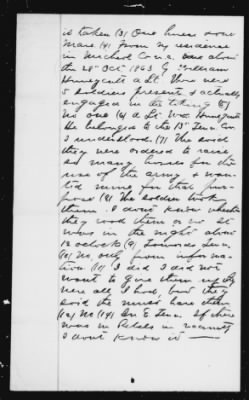 is taken (3) One horse & one
Mare (4) From my residence
in Mitchel Co. N.C. on or about
the 28" Oct. 1863 by William
Honeycutt a Lt. There were
5 soldiers present & actually
engaged in the taking (5)
No one (6) a Lt. Wm Honeycutt
He belonged to the 13" Tenn. Co.
I understood. (7) He said
they were ordered to raise
so many horses for the
use of the army &
mine for that pur-
pose (8) The soldiers took
them. I don't know whether
they rood them or no it
was in the night about
12 oclock (9) Towards Tenn.
(10) No only from informa-
tion (11) I did I did not
want to give them up they
were all I had, but they
said the must have them
(12) No (14) In E. Tenn. If there
was in Rebels in vicinity
I don't know it